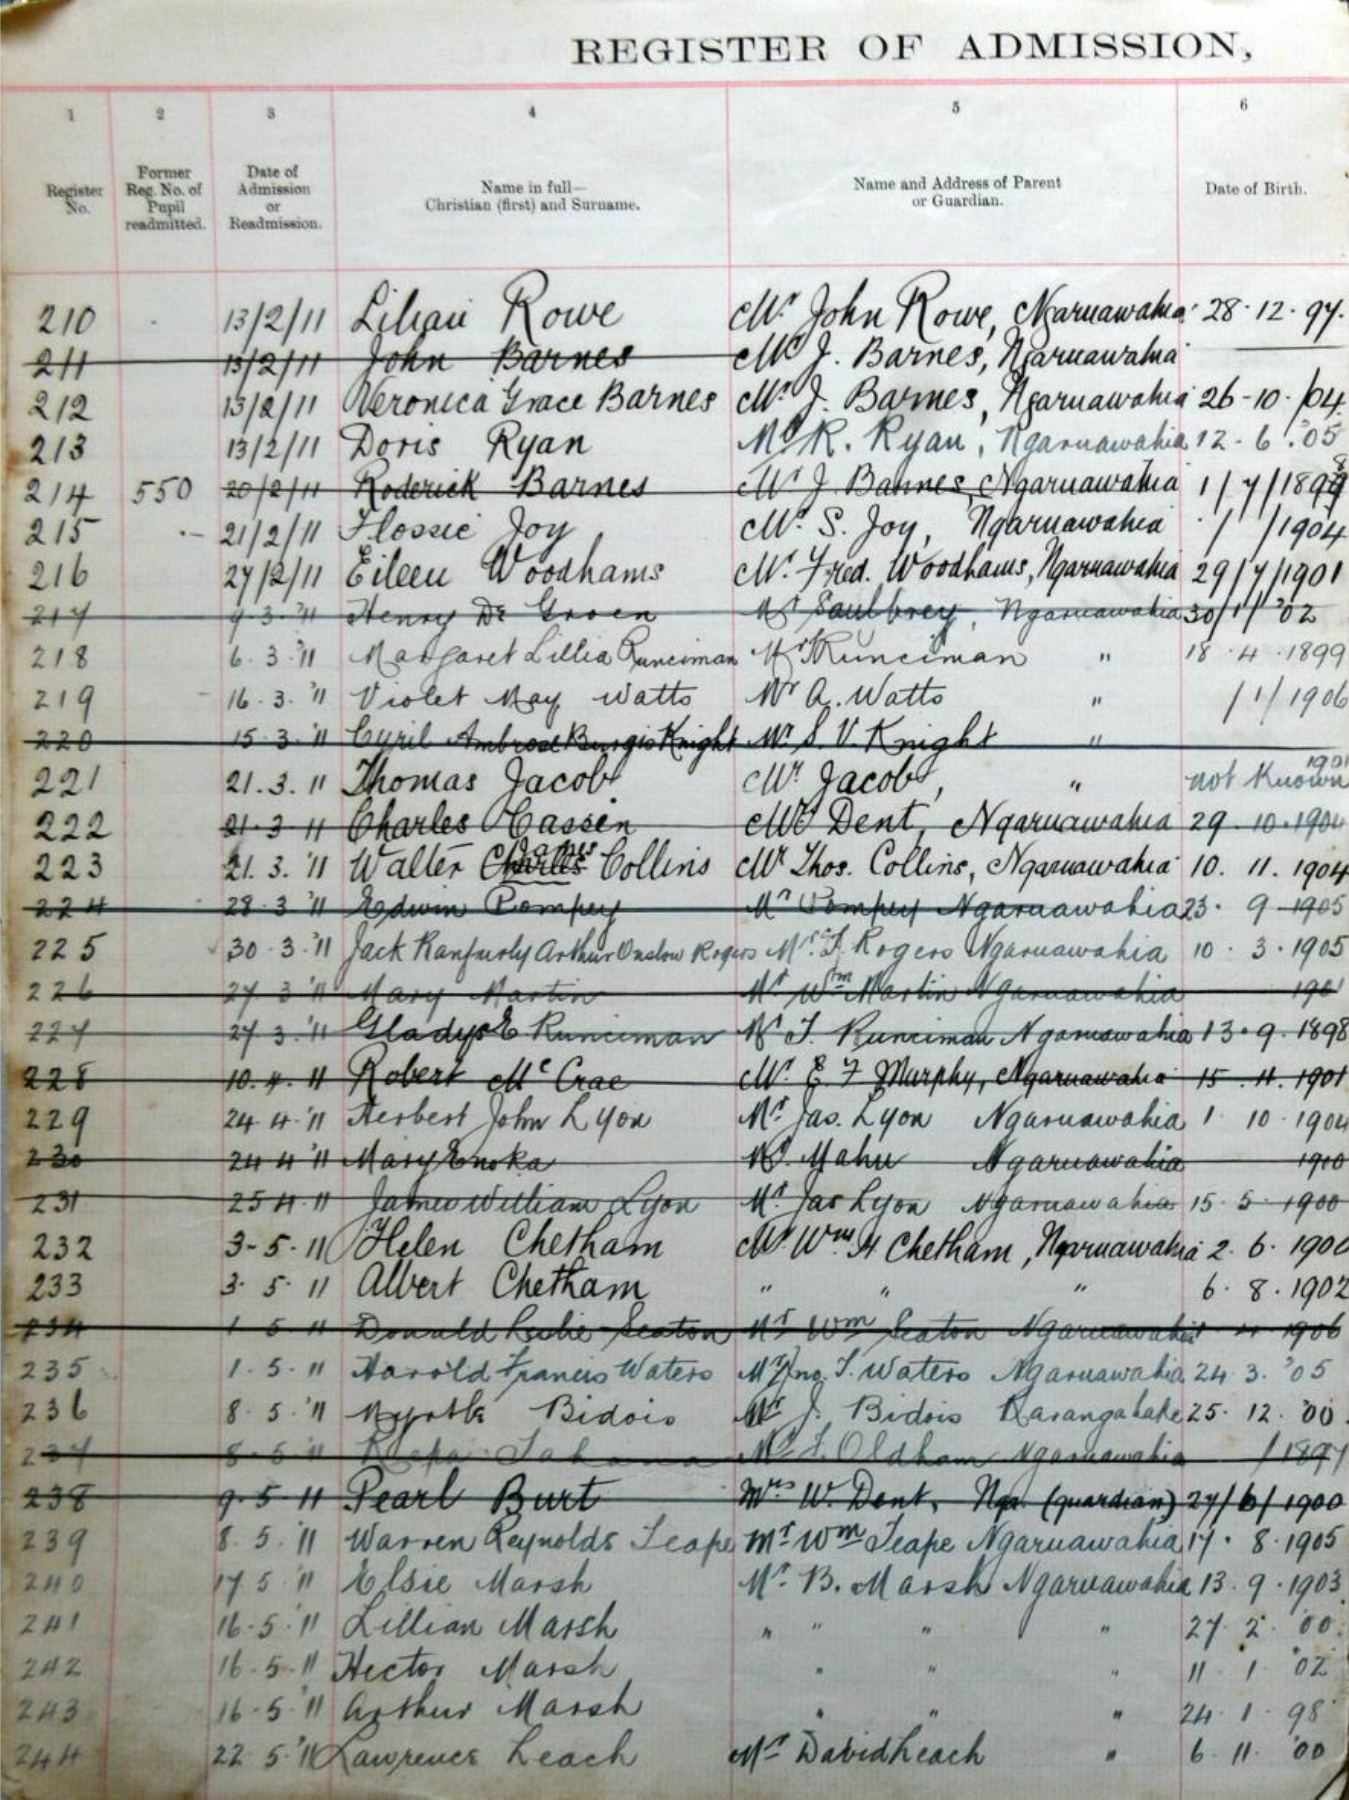 REGISTER OF ADMISSION,
1 2 3 4 5 6
Register No. Former Reg. No. of Pupil readmitted. Date of Admission or Readmission. Name in full— Christian (first) and Surname. Name and Address of Parent or Guardian. Date of Birth.
210 13/2/11 Lilian Rowe Mr John Rowe, Ngaruawahia 28.12.97.
211 13/2/11 John Barnes Mr J. Barnes, Ngaruawahia
212 13/2/11 Veronica Grace Barnes Mr. J. Barnes, Ngaruawahia 26-10-/04.
213 13/2/11 Doris Ryan Mr R. Ryan, Ngaruawahia 12.6.'05
214 550 20/2/11 Roderick Barnes Mr J Barnes, Ngaruawahia 1/7/1898
215 21/2/11 Flossie Joy Mr. S. Joy, Ngaruawahia / /1904
216 27/2/11 Eileen Woodhams Mr. Fred. Woodhams, Ngaruawahia 29/7/1901
217 9.3.'11 Henry De Groen Mr Saulbrey, Ngaruawahia 30/1/'02
218 6.3.'11 Margaret Lillia Runciman Mr Runciman " 18.4.1899
219 16.3.'11 Violet May Watts Mr A. Watts " /1/1906
220 15.3.'11 Cyril Ambrose Burgis Knight Mr. S. V. Knight "
221 21.3.11 Thomas Jacob Mr Jacob, " not known 1901
222 21.3.11 Charles Cassin Dent, Ngaruawahia 29.10.1904
223 21.3.'11 Walter Charles James Collins Mr Thos. Collins, Ngaruawahia 10.11.1904
224 28.3.'11 Edwin Pompey Mr Pompey Ngaruawahia 23.9.1905
225 30.3.'11 Jack Ranfurly Arthur Onslow Rogers Rogers Ngaruawahia 10.3.1905
226 27.3.'11 Mary Martin Mr Wm Martin Ngaruawahia 1901
227 27.3.'11 Gladys E Runciman Mr T. Runciman Ngaruawahia 13.9.1898
228 10.4.11 Robert McCrae Mr. E. F Murphy, Ngaruawahia 15.11.1901
229 24.4.'11 Herbert John Lyon Mr Jas. Lyon Ngaruawahia 1 10.1904
230 24 4 '11 Mary Enoka Mahu Ngaruawahia 1900
231 25.4.11 James William Lyon Mr. Jas Lyon Ngaruawahia 15.5.1900
232 3-5.11 Helen Chetham Mr Wm H Chetham, Ngaruawahia 2.6.1900
233 3.5.11 Albert Chetham " " " 6.8.1902
234 1 5.11 Donald Leslie Seaton Mr Wm Seaton Ngaruawahia 1906
235 1.5.11 Harold Francis Waters Mr Jno. T. Waters Ngaruawahia 24.3.'05
236 8.5.'11 Myrtle Bidois Mr J. Bidois 25.12.'00.
237 8.5.'11 Oldham Ngaruawahia /1897
238 9.5.11 Pearl Burt Mrs W. Dent, Nga. (guardian) 27/6/1900
239 8.5.'11 Warren Reynolds Teape Mr Wm Teape Ngaruawahia 17.8.1905
240 17 5 '11 Elsie Marsh Mr. B. Marsh Ngaruawahia 13.9.1903
241 16.5.'11 Lillian Marsh " " " " 27.2.'00.
242 16.5.11 Hector Marsh " " " 11.1.'02
243 16.5.'11 Arthur Marsh " " " 24.1.98
244 22 5.'11 Lawrence Leach Mr David Leach " 6.11.'00